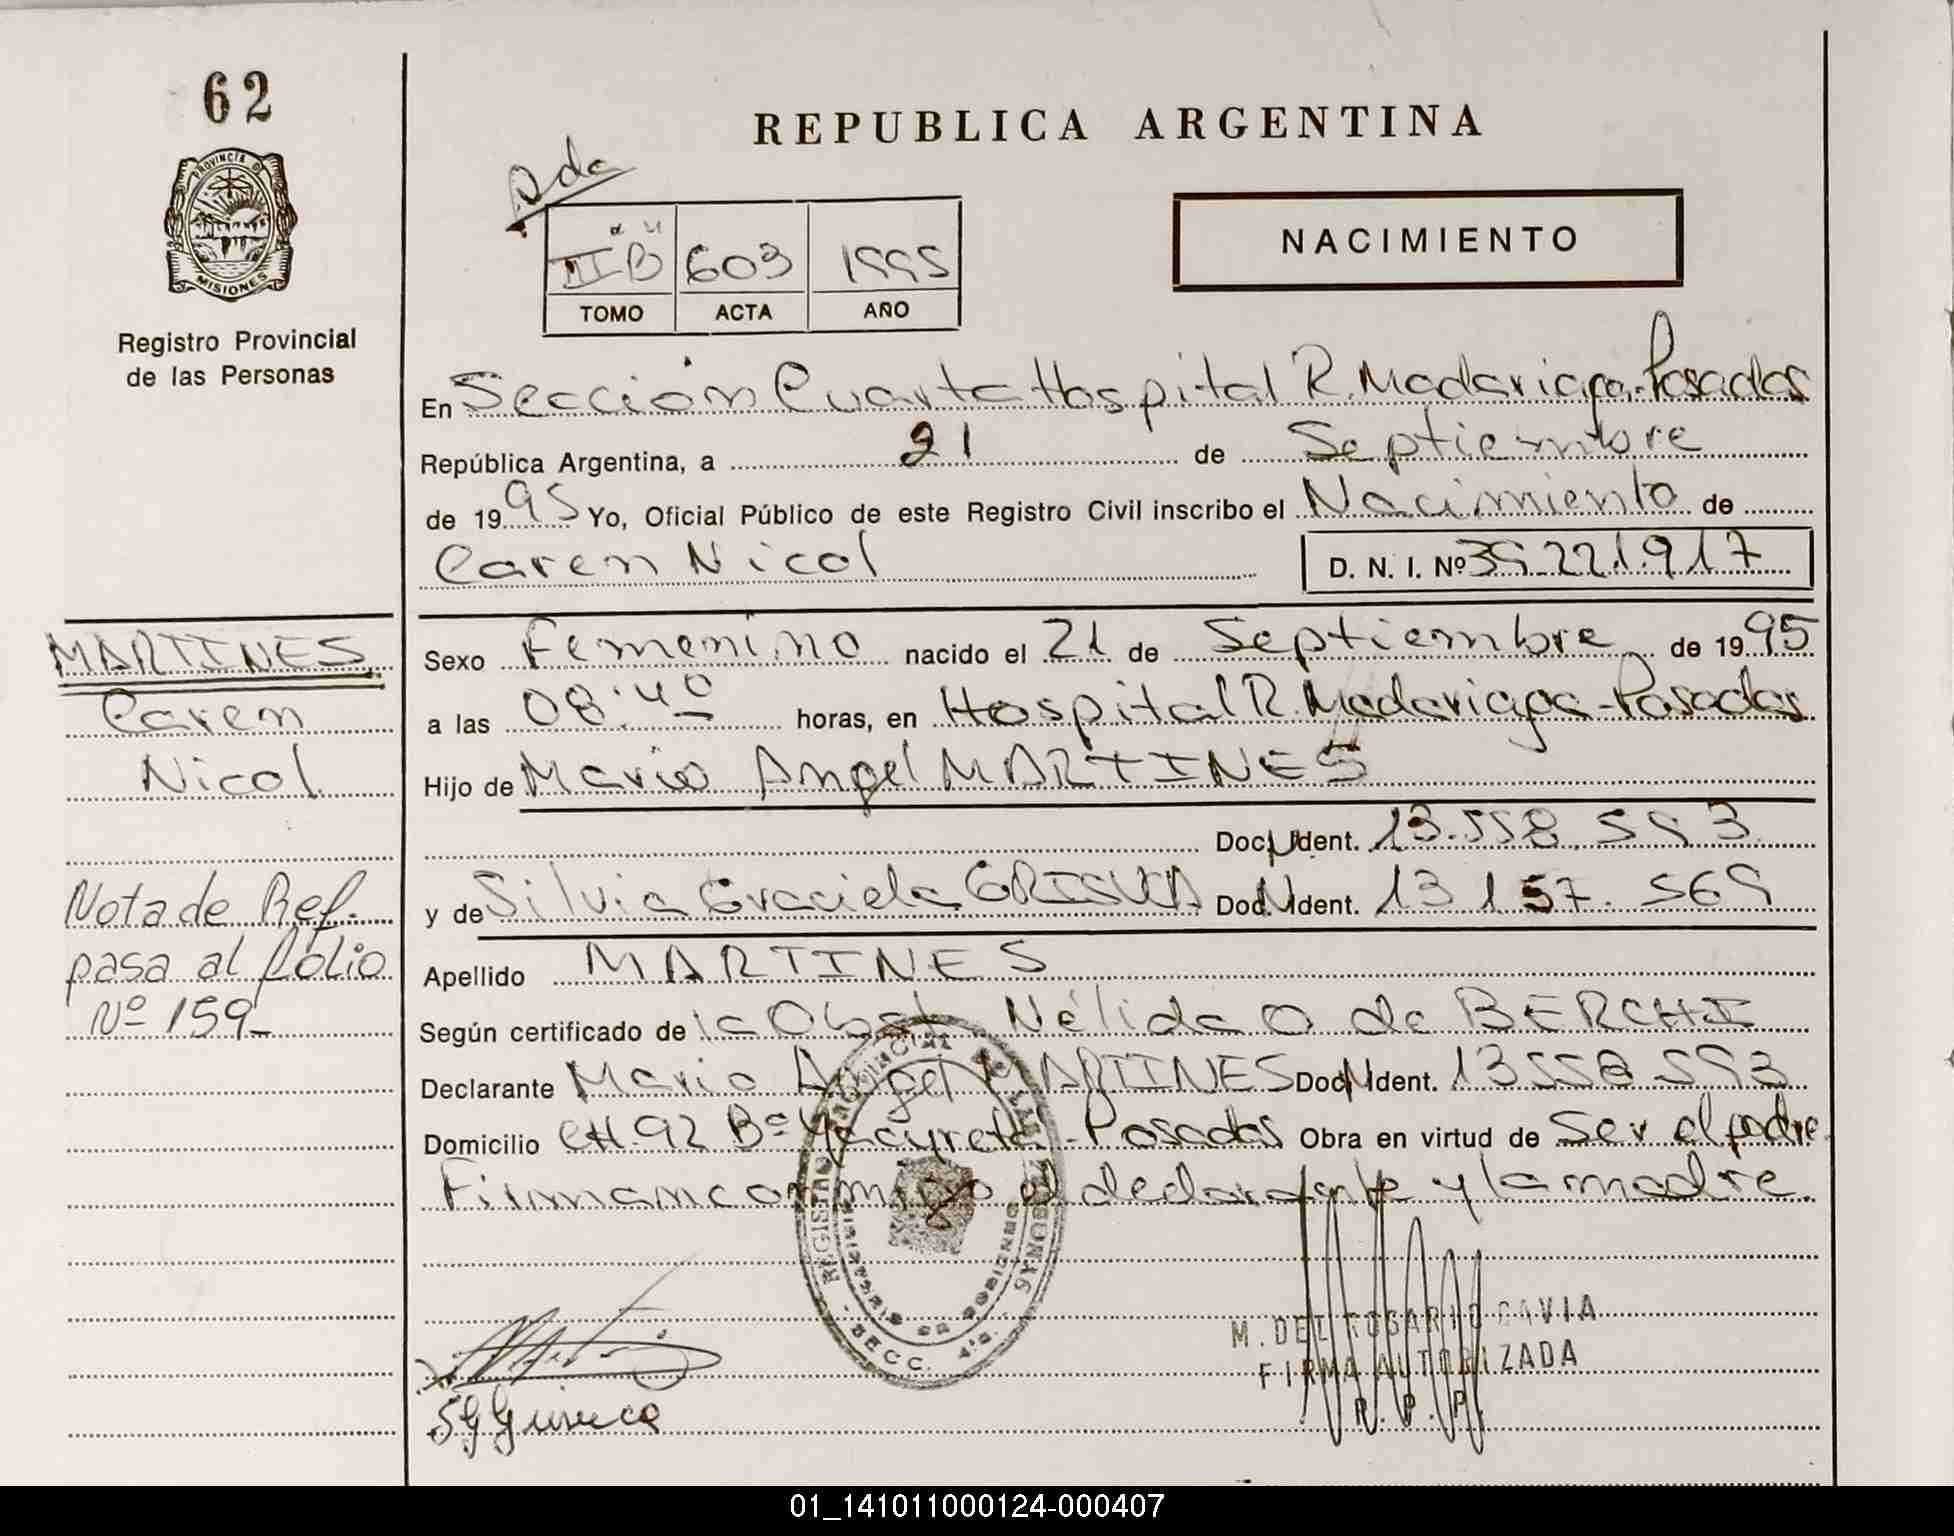 62
PROVINCIA DE
MISIONES
Registro Provincial
de las Personas
REPUBLICA ARGENTINA
NACIMIENTO
II B 603 1995
TOMO ACTA AÑO
En Sección Cuarta Hospital R. Madariaga-Posadas
República Argentina, a 21 de Septiembre
de 1995 Yo, Oficial Público de este Registro Civil inscribo el Nacimiento de
Caren Nicol D. N. I. Nº 39.221.917
MARTINES
Caren
Nicol
Nota de Ref.
pasa al folio
Nº 159
Sexo Femenino nacido el 21 de Septiembre de 1995
a las 08:40 horas, en Hospital R. Madariaga-Posadas
Hijo de Mario Angel MARTINES
Doc. Ident. 13.558.593
y de Silvia Graciela Doc. Ident. 13.157.569
Apellido MARTINES
Según certificado de la Obst. Nélida O de BERCHI
Declarante Mario Angel MARTINES Doc. Ident. 13558593
Domicilio CH. 92 Bº Yacyreta-Posadas Obra en virtud de Ser el padre
Firman conmigo el declarante y la madre.
REGISTRO PROVINCIAL DE LAS PERSONAS
SECC. 4ta.
M. DEL ROSARIO GAVIA
FIRMA AUTORIZADA
R. P. P.
01_141011000124-000407